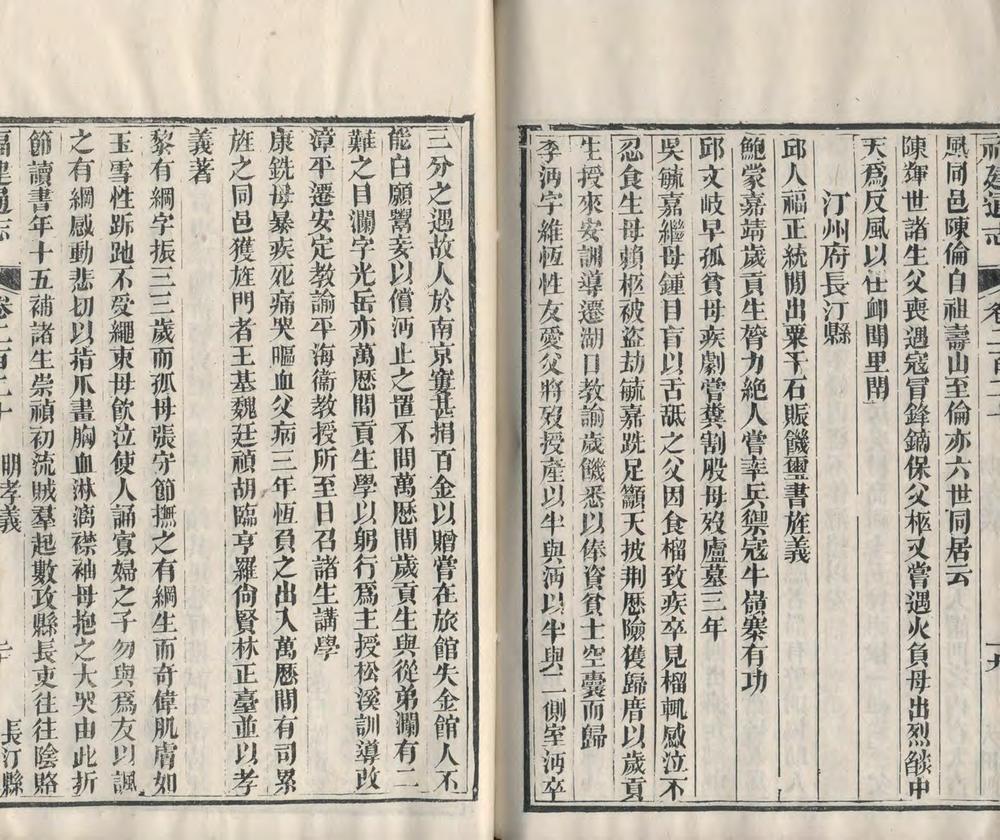 福建通志 卷二百二十
風同邑陳倫自祖壽山至倫亦六世同居云
陳煇世諸生父喪遇寇冒鋒鏑保父柩又嘗遇火負母出烈燄中
天爲反風以任卹聞里閈
汀州府長汀縣
邱人福正統閒出粟千石賑饑璽書旌義
鮑蒙嘉靖歲貢生膂力絕人嘗率兵禦寇牛嶺寨有功
邱文岐早孤貧母疾劇嘗糞割股母歿廬墓三年
吳毓嘉繼母鍾目盲以舌舐之父因食榴致疾卒見榴輒感泣不
忍食生母賴柩被盜劫毓嘉跣足籲天披荆歷險獲歸厝以歲貢
生授來安訓導遷湖口教諭歲饑悉以俸資貧士空囊而歸
李沔字維恆性友愛父將歿授產以半與沔以半與二側室沔卒
三分之遇故人於南京窶甚捐百金以贈嘗在旅館失金館人不
能白願鬻妾以償沔止之置不問萬歷間歲貢生與從弟瀾有二
難之目瀾字光岳亦萬歷間貢生學以躬行爲主授松溪訓導改
漳平遷安定教諭平海衞教授所至日召諸生講學
康銑母暴疾死痛哭嘔血父病三年恆負之出入萬歷間有司累
旌之同邑獲旌門者王基魏廷禎胡臨亨羅尙賢林正臺並以孝
義著
黎有綱字振三三歲而孤母張守節撫之有綱生而奇偉肌膚如
玉雪性跅跎不受繩束母飮泣使人誦寡婦之子勿與爲友以諷
之有綱感動悲切以指爪畫胸血淋漓襟袖母抱之大哭由此折
節讀書年十五補諸生崇禎初流賊羣起數攻縣長吏往往陰賂
福建通志 卷二百二十 明孝義 長汀縣